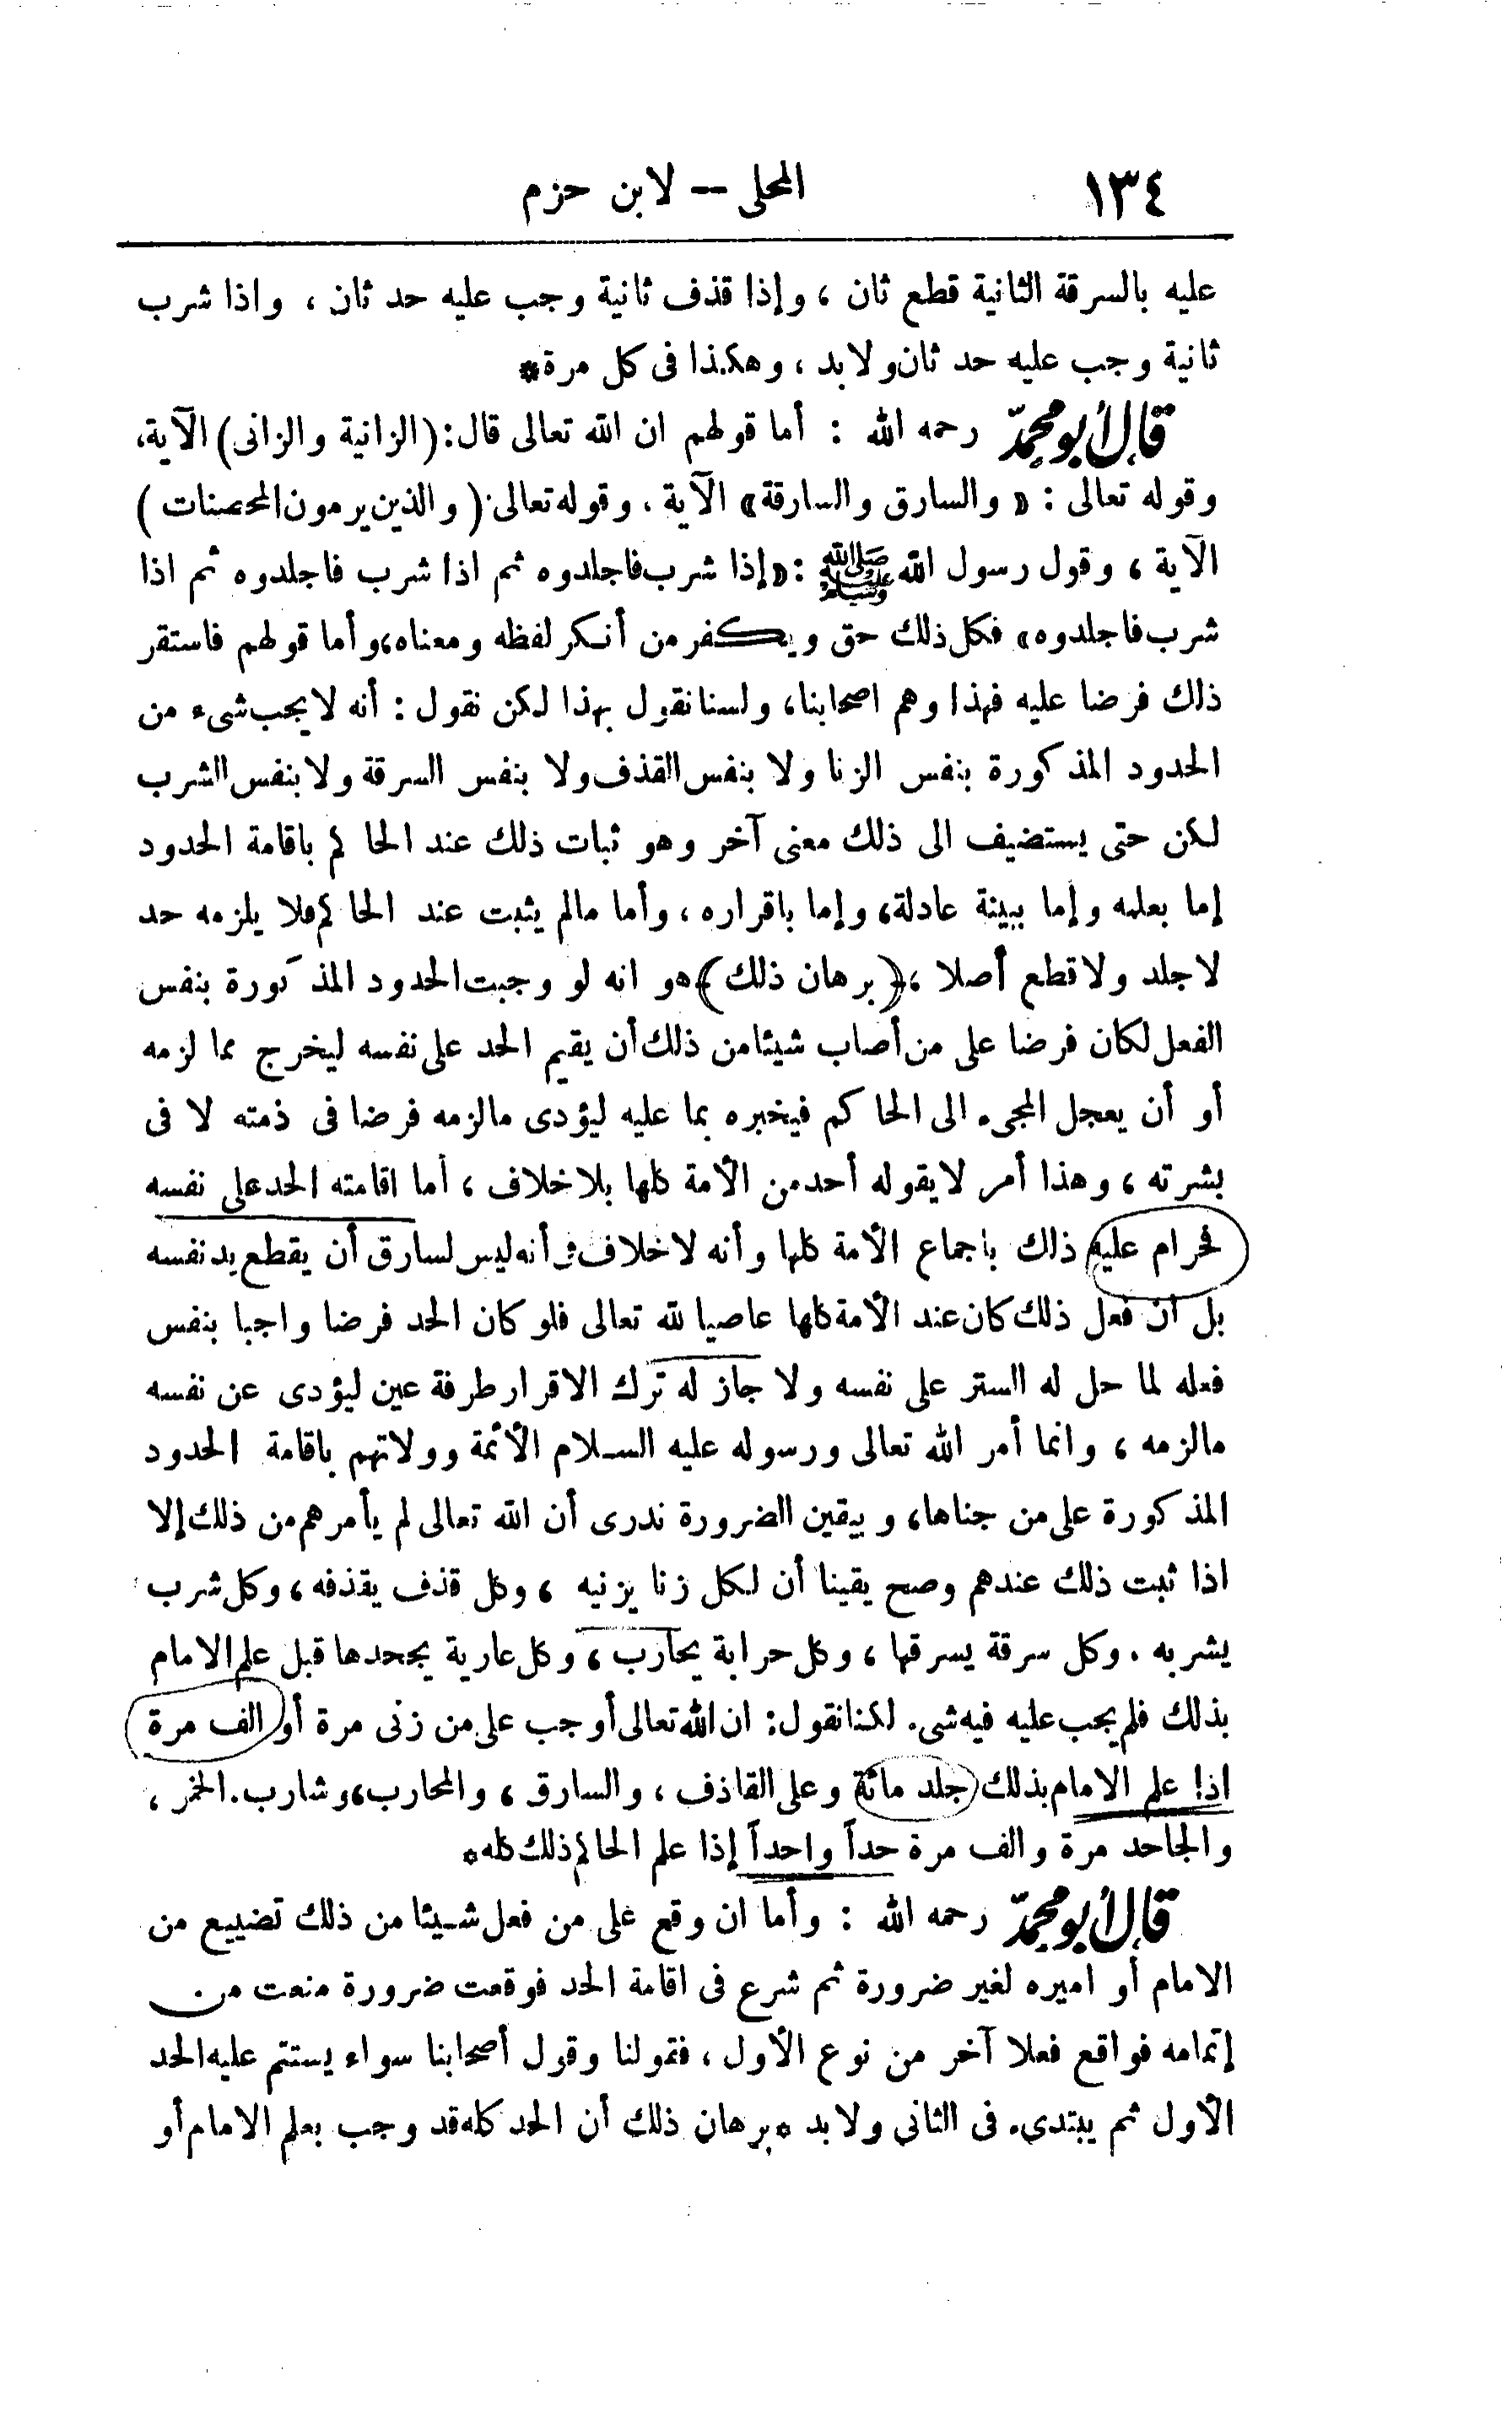 ١٣٤ المحلى — لابن حزم
عليه بالسرقة الثانية قطع ثان ، وإذا قذف ثانية وجب عليه حد ثان ، واذا شرب
ثانية وجب عليه حد ثان ولابد ، وهكذا فى كل مرة*
قال أبو محمد رحمه الله : أما قولهم ان الله تعالى قال: (الزانية والزانى) الآية،
وقوله تعالى : « والسارق والسارقة» الآية ، وقوله تعالى: (والذين يرمون المحصنات)
الآية ، وقول رسول الله ﷺ : «إذا شرب فاجلدوه ثم اذا شرب فاجلدوه ثم اذا
شرب فاجلدوه» فكل ذلك حق ويكفر من أنكر لفظه ومعناه، وأما قولهم فاستقر
ذلك فرضا عليه فهذا وهم اصحابنا، ولسنا نقول بهذا لكن نقول : أنه لا يجب شىء من
الحدود المذكورة بنفس الزنا ولا بنفس القذف ولا بنفس السرقة ولا بنفس الشرب
لكن حتى يستضيف الى ذلك معنى آخر وهو ثبات ذلك عند الحاكم باقامة الحدود
إما بعلمه وإما ببينة عادلة، وإما باقراره ، وأما مالم يثبت عند الحاكم فلا يلزمه حد
لا جلد ولا قطع أصلا ، (برهان ذلك) هو انه لو وجبت الحدود المذكورة بنفس
الفعل لكان فرضا على من أصاب شيئا من ذلك أن يقيم الحد على نفسه ليخرج مما لزمه
أو أن يعجل المجىء الى الحاكم فيخبره بما عليه ليؤدى مالزمه فرضا فى ذمته لا فى
بشرته ، وهذا أمر لا يقوله أحد من الأمة كلها بلا خلاف ، أما اقامته الحد على نفسه
فحرام عليه ذلك باجماع الأمة كلها وأنه لا خلاف فى أنه ليس لسارق أن يقطع يد نفسه
بل ان فعل ذلك كان عند الأمة كلها عاصيا لله تعالى فلو كان الحد فرضا واجبا بنفس
فعله لما حل له الستر على نفسه ولا جاز له ترك الاقرار طرفة عين ليؤدى عن نفسه
مالزمه ، وانما أمر الله تعالى ورسوله عليه السلام الأئمة وولاتهم باقامة الحدود
المذكورة على من جناها، وبيقين الضرورة ندرى أن الله تعالى لم يأمرهم من ذلك إلا
اذا ثبت ذلك عندهم وصح يقينا أن لكل زنا يزنيه ، وكل قذف يقذفه ، وكل شرب
يشربه . وكل سرقة يسرقها ، وكل حرابة يحارب ، وكل عارية يجحدها قبل علم الامام
بذلك فلم يجب عليه فيه شىء. لكنا نقول: ان الله تعالى أوجب على من زنى مرة أو الف مرة
اذا علم الامام بذلك جلد مائة وعلى القاذف ، والسارق ، والمحارب، وشارب الخمر ،
والجاحد مرة والف مرة حداً واحداً إذا علم الحاكم ذلك كله*
قال أبو محمد رحمه الله : وأما ان وقع على من فعل شيئا من ذلك تضييع من
الامام أو اميره لغير ضرورة ثم شرع فى اقامة الحد فوقعت ضرورة منعت من
إتمامه فواقع فعلا آخر من نوع الأول ، فقولنا وقول أصحابنا سواء يستتم عليه الحد
الأول ثم يبتدىء فى الثانى ولابد * برهان ذلك أن الحد كله قد وجب بعلم الامام أو